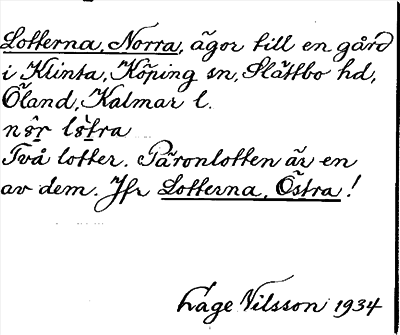 Lotterna, Norra, ägor till en gård
i Klinta, Köping sn, Slättbo hd,
Öland, Kalmar l.
Två lotter. Päronlotten är en
av dem. Jfr Lotterna, Östra!
Åage Nilsson 1934